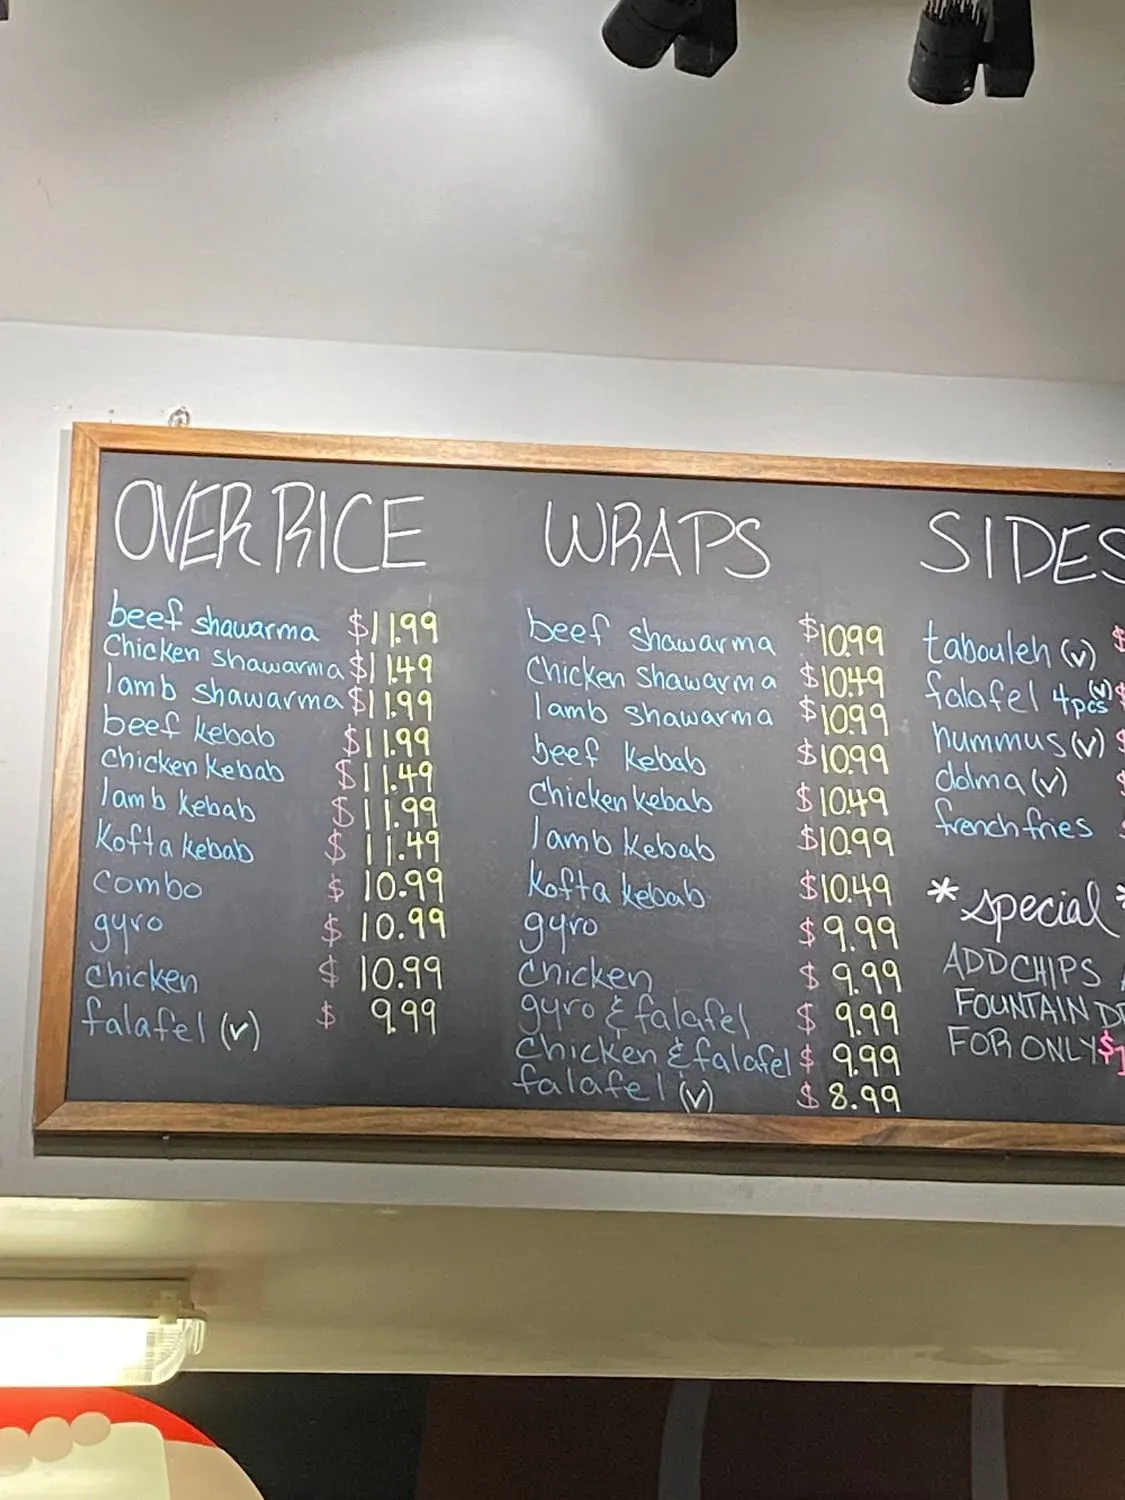 OVER RICE
beef shawarma $11.99
Chicken shawarma $11.49
lamb shawarma $11.99
beef kebab $11.99
chicken kebab $11.49
lamb kebab $11.99
Kofta kebab $11.49
combo $10.99
gyro $10.99
chicken $10.99
falafel (v) $9.99
WRAPS
beef shawarma $10.99
Chicken Shawarma $10.49
lamb shawarma $10.99
beef kebab $10.99
Chicken kebab $10.49
lamb kebab $10.99
Kofta kebab $10.49
gyro $9.99
Chicken $9.99
gyro & falafel $9.99
Chicken & falafel $9.99
falafel (v) $8.99
SIDES
tabouleh (v) $
falafel 4pcs (v) $
hummus (v) $
dolma (v) $
french fries $
*special*
ADD CHIPS
FOUNTAIN
FOR ONLY $1